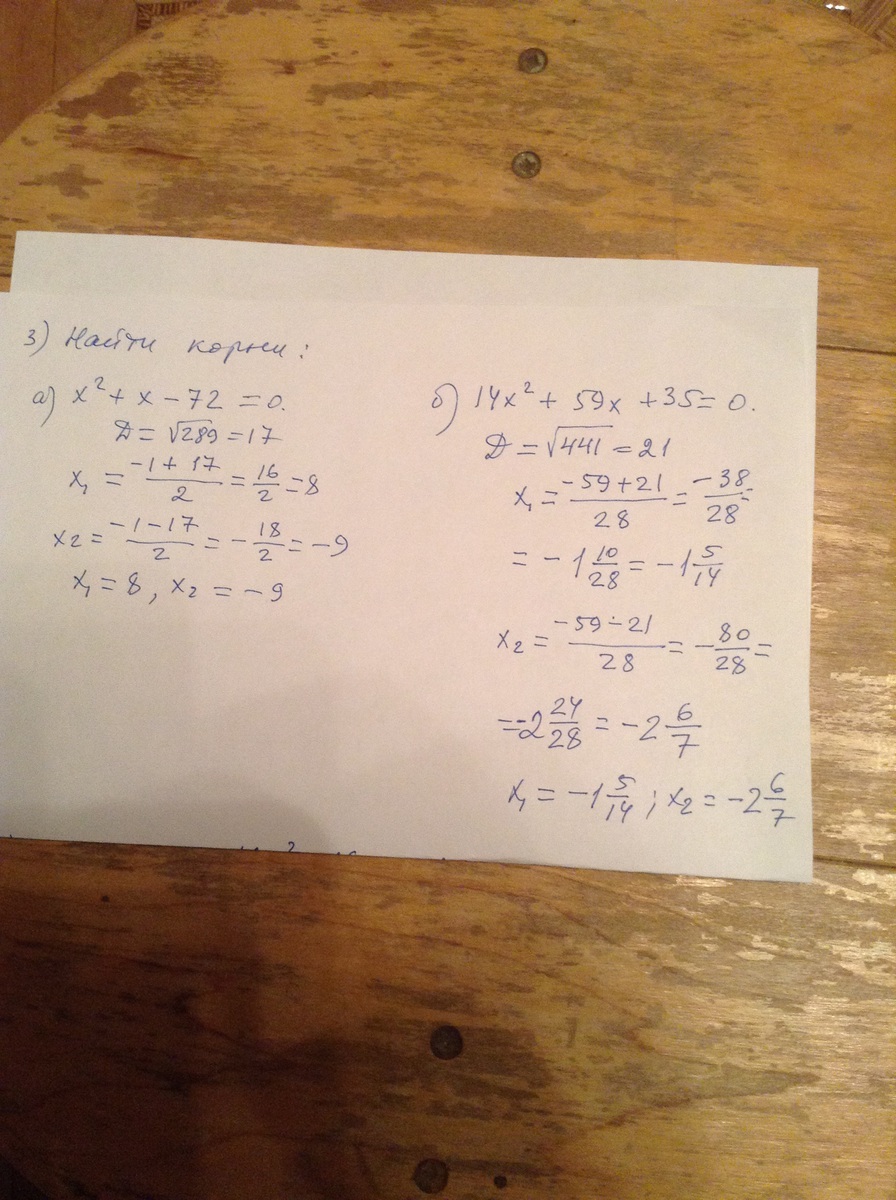 3) Найти корни:
а) x² + x − 72 = 0.
D = √289 = 17
x₁ = (−1 + 17)/2 = 16/2 = 8
x₂ = (−1 − 17)/2 = −18/2 = −9
x₁ = 8, x₂ = −9
б) 14x² + 59x + 35 = 0.
D = √441 = 21
x₁ = (−59 + 21)/28 = −38/28 =
= −1 10/28 = −1 5/14
x₂ = (−59 − 21)/28 = −80/28 =
= −2 24/28 = −2 6/7
x₁ = −1 5/14; x₂ = −2 6/7